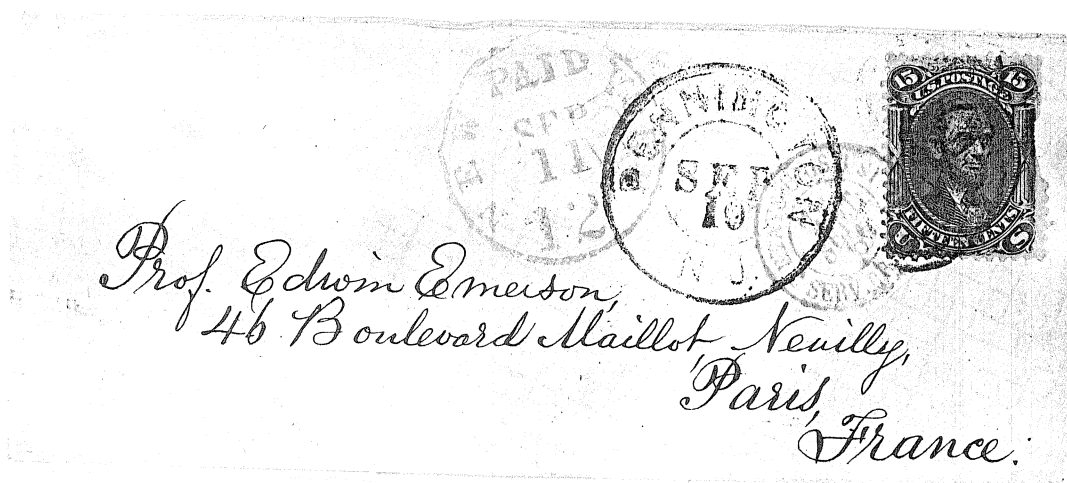 PAID
SEP
11
12
PENNINGTON
SEP
10
N.J.
15 U.S. POSTAGE 15
FIFTEEN CENTS
U S
Prof. Edwin Emerson,
46 Boulevard Maillot, Neuilly,
Paris,
France.